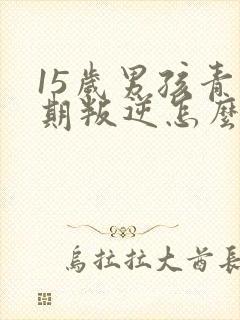 15歲男孩青
期叛逆怎麼
烏拉拉大酋長